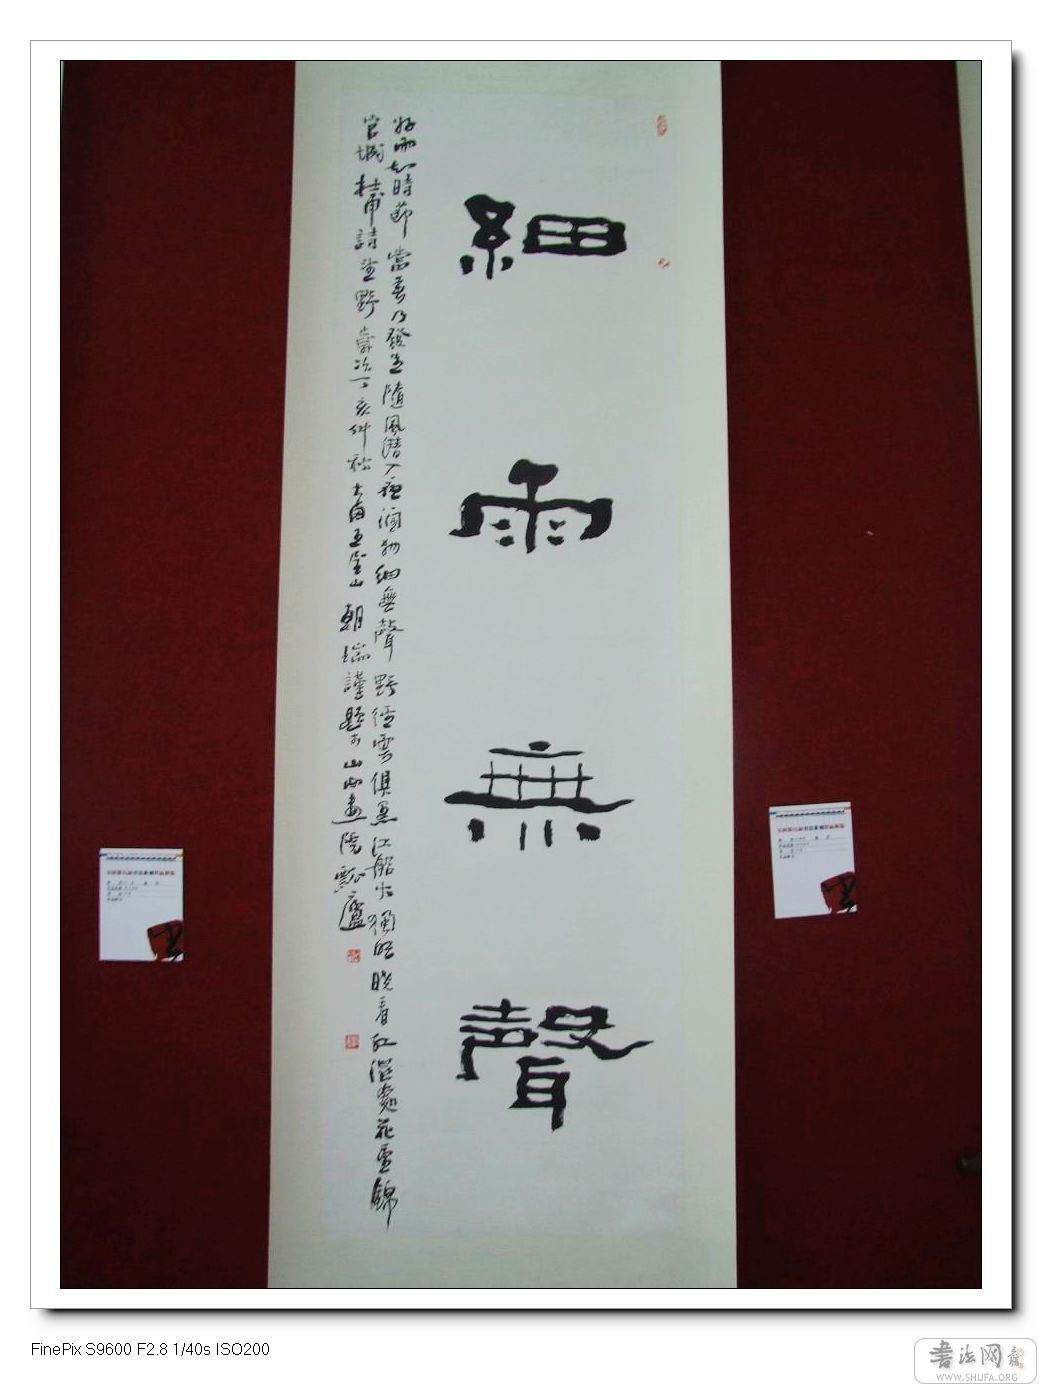 細雨無聲
好雨知時節當春乃發生隨風潛入夜潤物細無聲野徑雲俱黑江船火獨明曉看紅濕處花重錦
官城 杜甫詩春野 歲次丁亥仲秋 古南五臺山 朝瑞謹題於山南畫院瓢廬
FinePix S9600 F2.8 1/40s ISO200
書法网
WWW.SHUFA.ORG